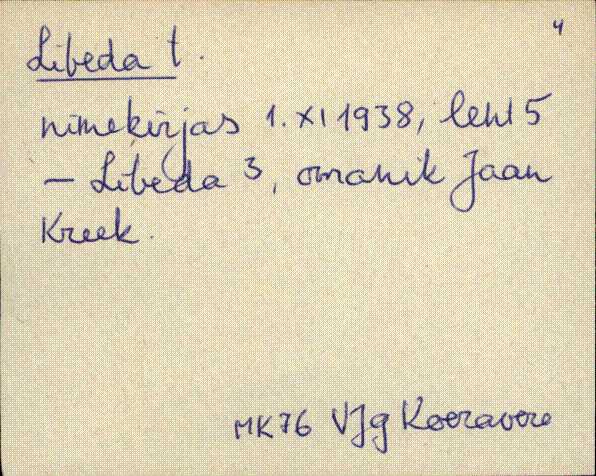 4
Libeda t.
nimekirjas 1. XI 1938, leht 5
– Libeda 3, omanik Jaan
Kreek.
MK76 VJg Koeravere